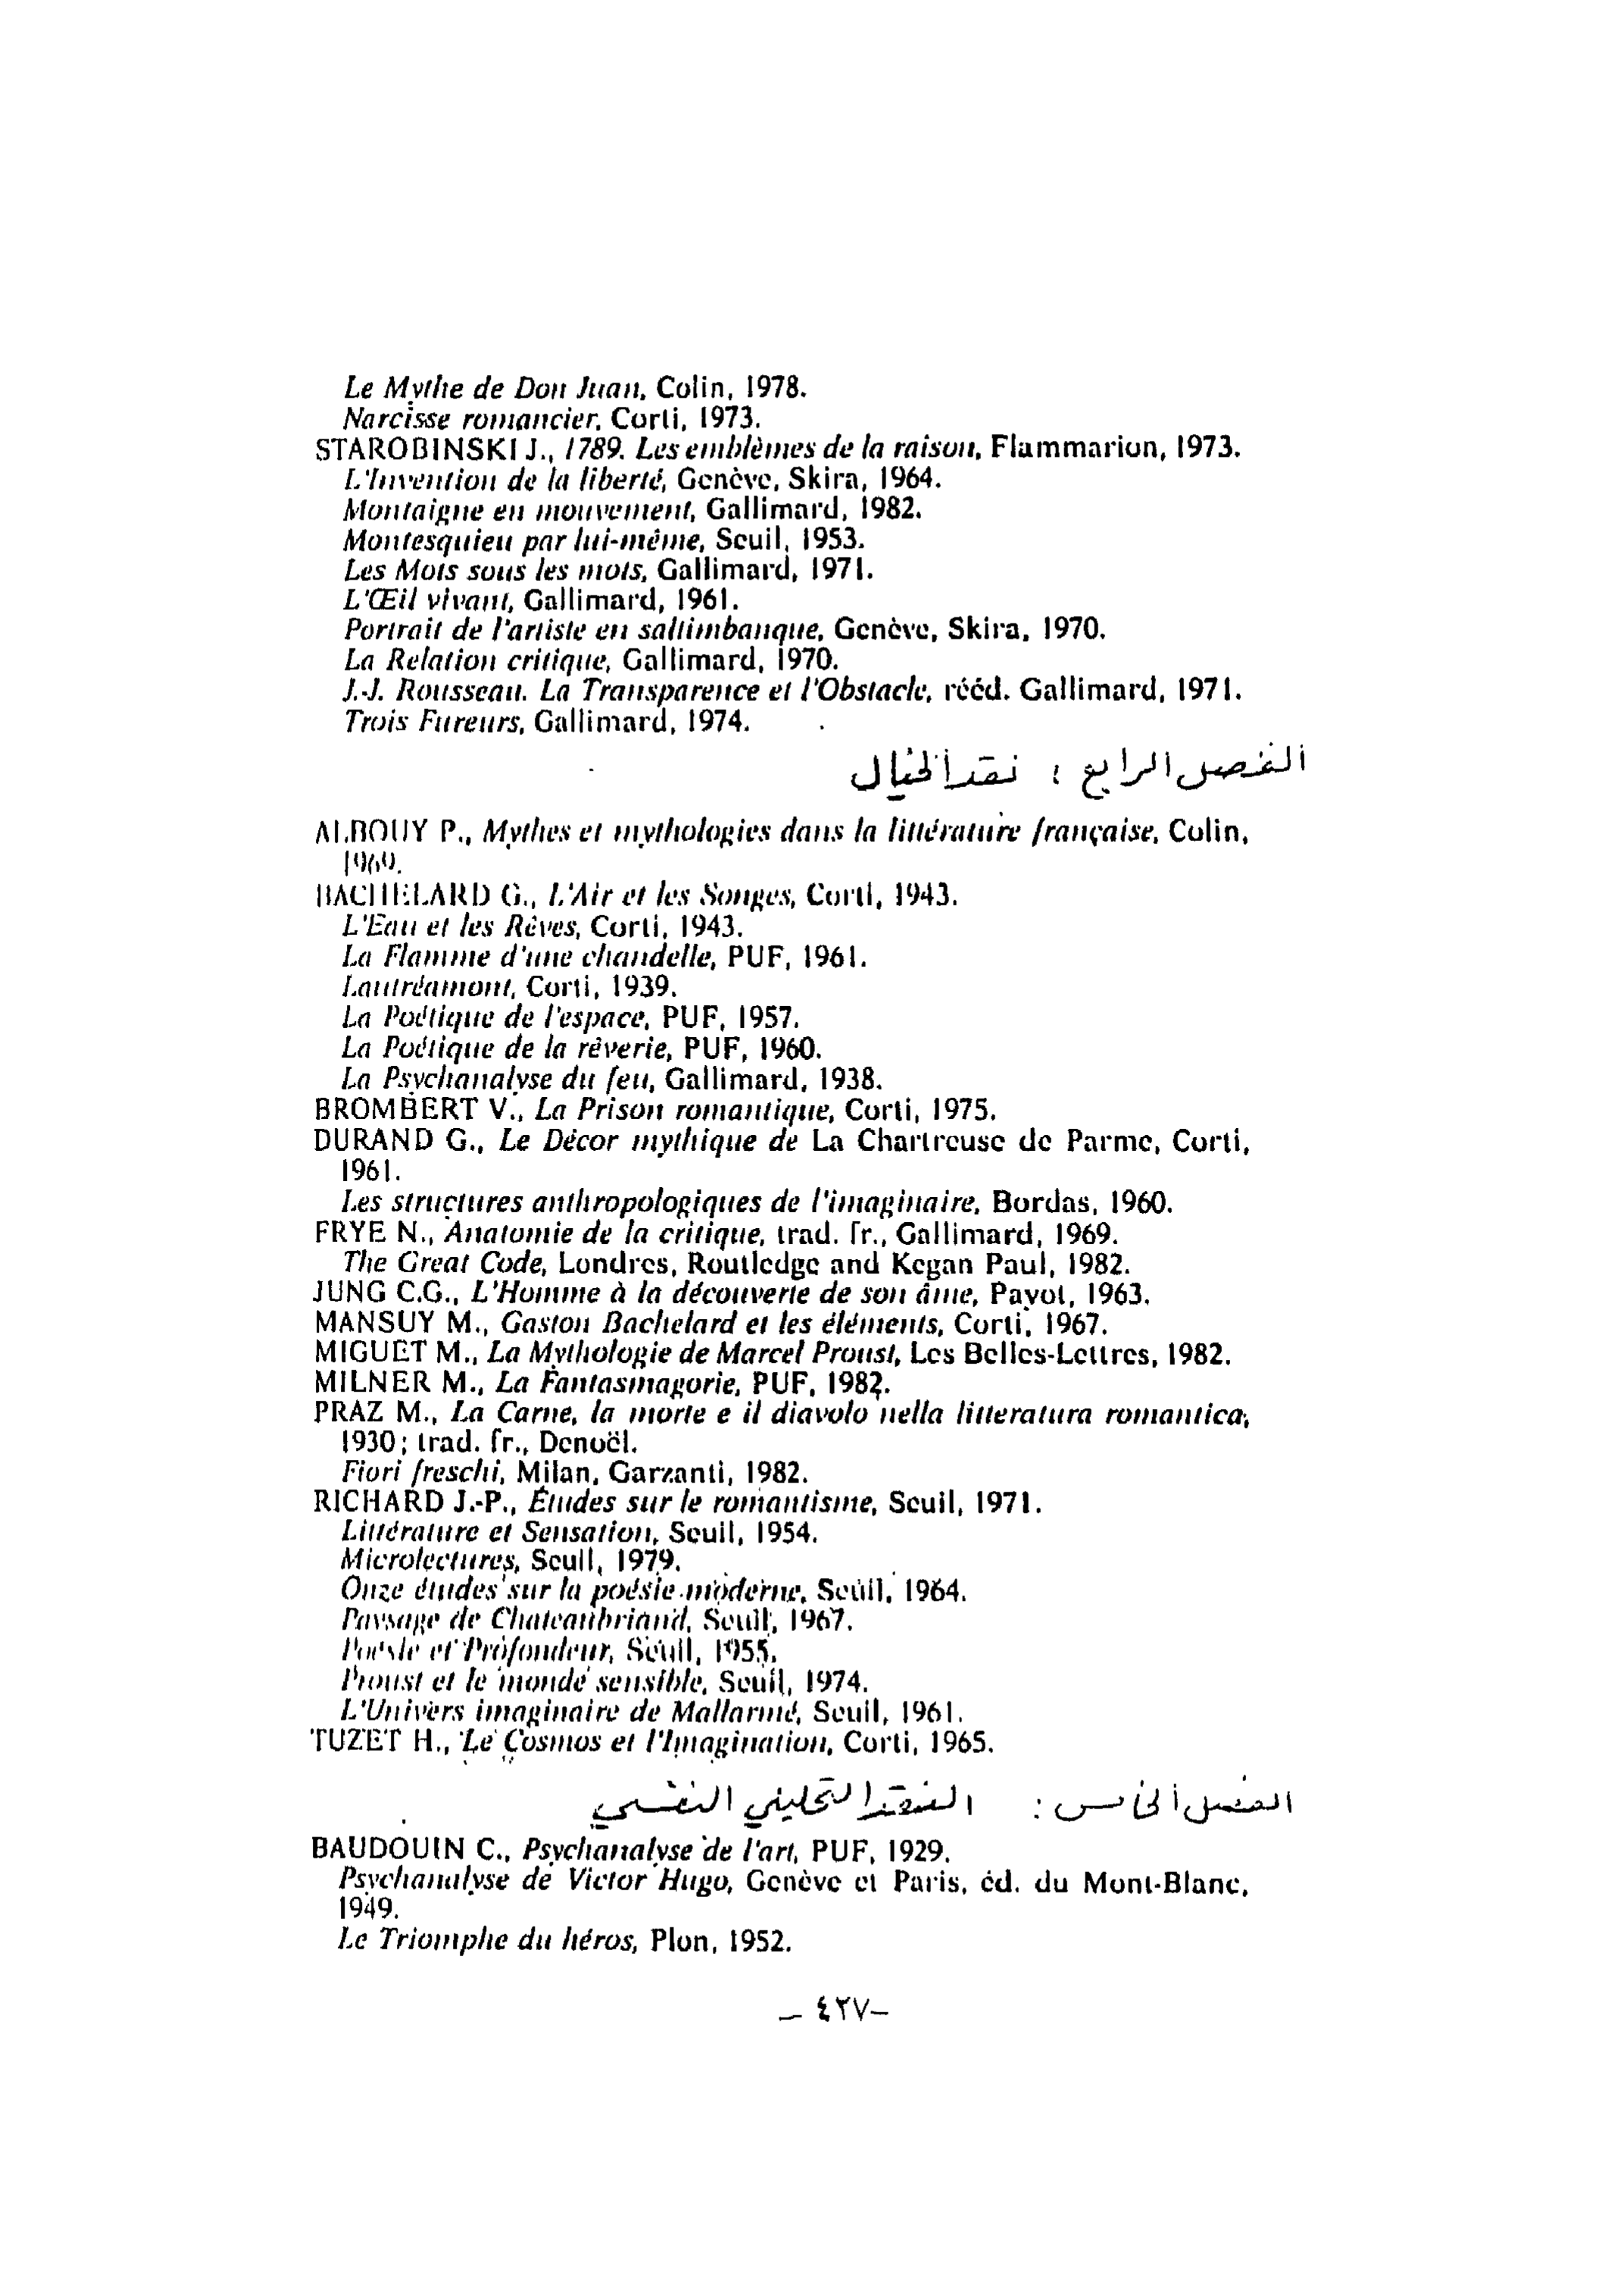 Le Mythe de Don Juan, Colin, 1978.
Narcisse romancier, Corti, 1973.
STAROBINSKI J., 1789. Les emblèmes de la raison, Flammarion, 1973.
L'Invention de la liberté, Genève, Skira, 1964.
Montaigne en mouvement, Gallimard, 1982.
Montesquieu par lui-même, Seuil, 1953.
Les Mots sous les mots, Gallimard, 1971.
L'Œil vivant, Gallimard, 1961.
Portrait de l'artiste en saltimbanque, Genève, Skira, 1970.
La Relation critique, Gallimard, 1970.
J.-J. Rousseau. La Transparence et l'Obstacle, rééd. Gallimard, 1971.
Trois Fureurs, Gallimard, 1974.
الفصل الرابع : نقد الخيال
ALBOUY P., Mythes et mythologies dans la littérature française, Colin,
1969.
BACHELARD G., L'Air et les Songes, Corti, 1943.
L'Eau et les Rêves, Corti, 1943.
La Flamme d'une chandelle, PUF, 1961.
Lautréamont, Corti, 1939.
La Poétique de l'espace, PUF, 1957.
La Poétique de la rêverie, PUF, 1960.
La Psychanalyse du feu, Gallimard, 1938.
BROMBERT V., La Prison romantique, Corti, 1975.
DURAND G., Le Décor mythique de La Chartreuse de Parme, Corti,
1961.
Les structures anthropologiques de l'imaginaire, Bordas, 1960.
FRYE N., Anatomie de la critique, trad. fr., Gallimard, 1969.
The Great Code, Londres, Routledge and Kegan Paul, 1982.
JUNG C.G., L'Homme à la découverte de son âme, Payot, 1963.
MANSUY M., Gaston Bachelard et les éléments, Corti, 1967.
MIGUET M., La Mythologie de Marcel Proust, Les Belles-Lettres, 1982.
MILNER M., La Fantasmagorie, PUF, 1982.
PRAZ M., La Carne, la morte e il diavolo nella litteratura romantica,
1930; trad. fr., Denoël.
Fiori freschi, Milan, Garzanti, 1982.
RICHARD J.-P., Études sur le romantisme, Seuil, 1971.
Littérature et Sensation, Seuil, 1954.
Microlectures, Seuil, 1979.
Onze études sur la poésie moderne, Seuil, 1964.
Paysage de Chateaubriand, Seuil, 1967.
Poésie et Profondeur, Seuil, 1955.
Proust et le monde sensible, Seuil, 1974.
L'Univers imaginaire de Mallarmé, Seuil, 1961.
TUZET H., Le Cosmos et l'Imagination, Corti, 1965.
الفصل الخامس : النقد التحليلي النفسي
BAUDOUIN C., Psychanalyse de l'art, PUF, 1929.
Psychanalyse de Victor Hugo, Genève et Paris, éd. du Mont-Blanc,
1949.
Le Triomphe du héros, Plon, 1952.
– ٤٢٧ –